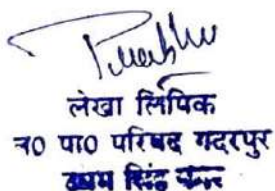 लेखा लिपिक
न० पा० परिषद गदरपुर
ऊधम सिंह नगर